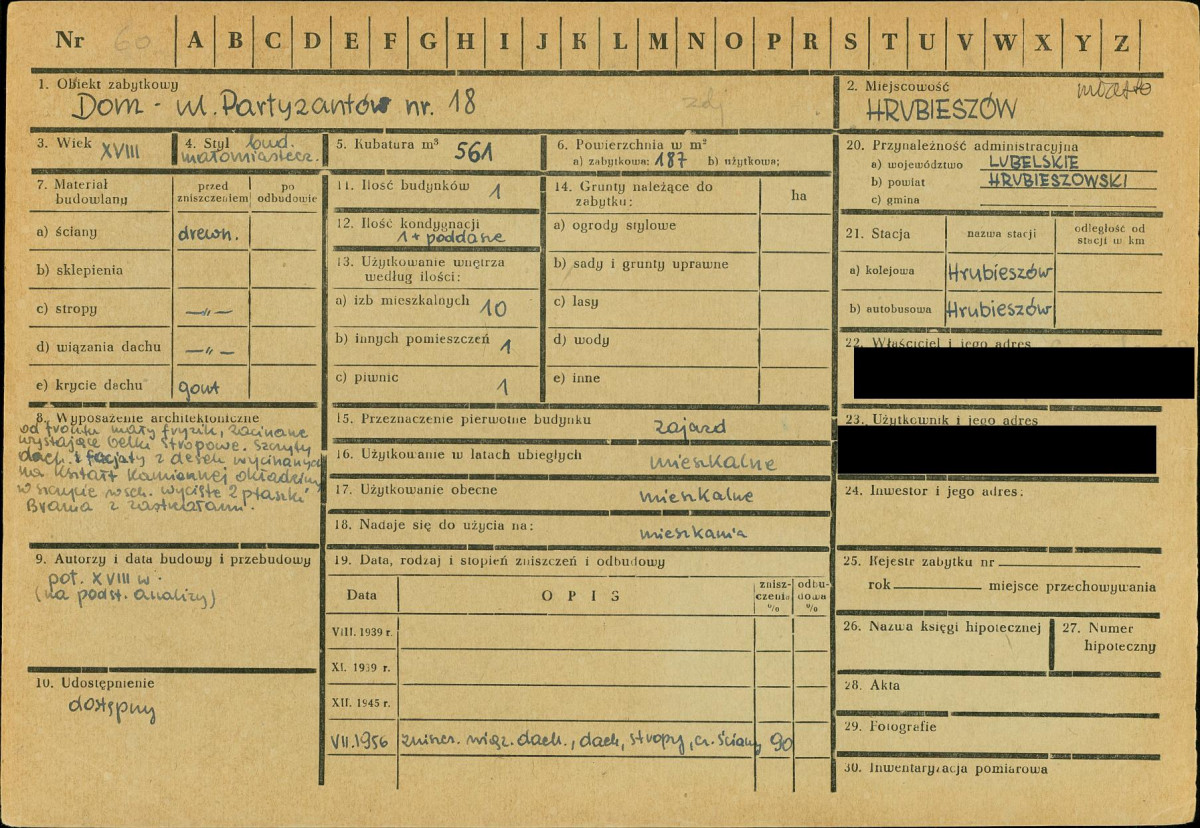 Nr 60 A B C D E F G H I J K L M N O P R S T U V W X Y Z
1. Obiekt zabytkowy
Dom - ul. Partyzantów nr. 18
zdj
2. Miejscowość
miasto
HRUBIESZÓW
3. Wiek XVIII
4. Styl bud.
małomiastecz.
5. Kubatura m³ 561
6. Powierzchnia w m²
a) zabytkowa: 187 b) użytkowa:
20. Przynależność administracyjna
a) województwo LUBELSKIE
b) powiat HRUBIESZOWSKI
c) gmina
7. Materiał budowlany
przed zniszczeniem
po odbudowie
a) ściany drewn.
b) sklepienia
c) stropy —„—
d) wiązania dachu —„—
e) krycie dachu gont
8. Wyposażenie architektoniczne
od frontu mały fryzik, zacinane
wystające belki stropowe. Szczyty
dach. i facjaty z desek wycinanych
na kształt kamiennej okładziny
w szczycie wsch. wycięte 2 ptaszki
Brama z zastrzałami.
9. Autorzy i data budowy i przebudowy
poł. XVIII w.
(na podst. analizy)
10. Udostępnienie
dostępny
11. Ilość budynków 1
12. Ilość kondygnacji
1 + poddasze
13. Użytkowanie wnętrza
według ilości:
a) izb mieszkalnych 10
b) innych pomieszczeń 1
c) piwnic 1
14. Grunty należące do
zabytku:
ha
a) ogrody stylowe
b) sady i grunty uprawne
c) lasy
d) wody
e) inne
15. Przeznaczenie pierwotne budynku zajazd
16. Użytkowanie w latach ubiegłych mieszkalne
17. Użytkowanie obecne mieszkalne
18. Nadaje się do użycia na: mieszkania
19. Data, rodzaj i stopień zniszczeń i odbudowy
Data OPIS
znisz-
czenia
%
odbu-
dowa
%
VIII. 1939 r.
XI. 1939 r.
XII. 1945 r.
VII.1956 zniszcz. wiąz. dach., dach, stropy, cz. ściany 90
21. Stacja
nazwa stacji
odległość od
stacji w km
a) kolejowa Hrubieszów
b) autobusowa Hrubieszów
22. Właściciel i jego adres
23. Użytkownik i jego adres
24. Inwestor i jego adres:
25. Rejestr zabytku nr
rok miejsce przechowywania
26. Nazwa księgi hipotecznej
27. Numer
hipoteczny
28. Akta
29. Fotografie
30. Inwentaryzacja pomiarowa